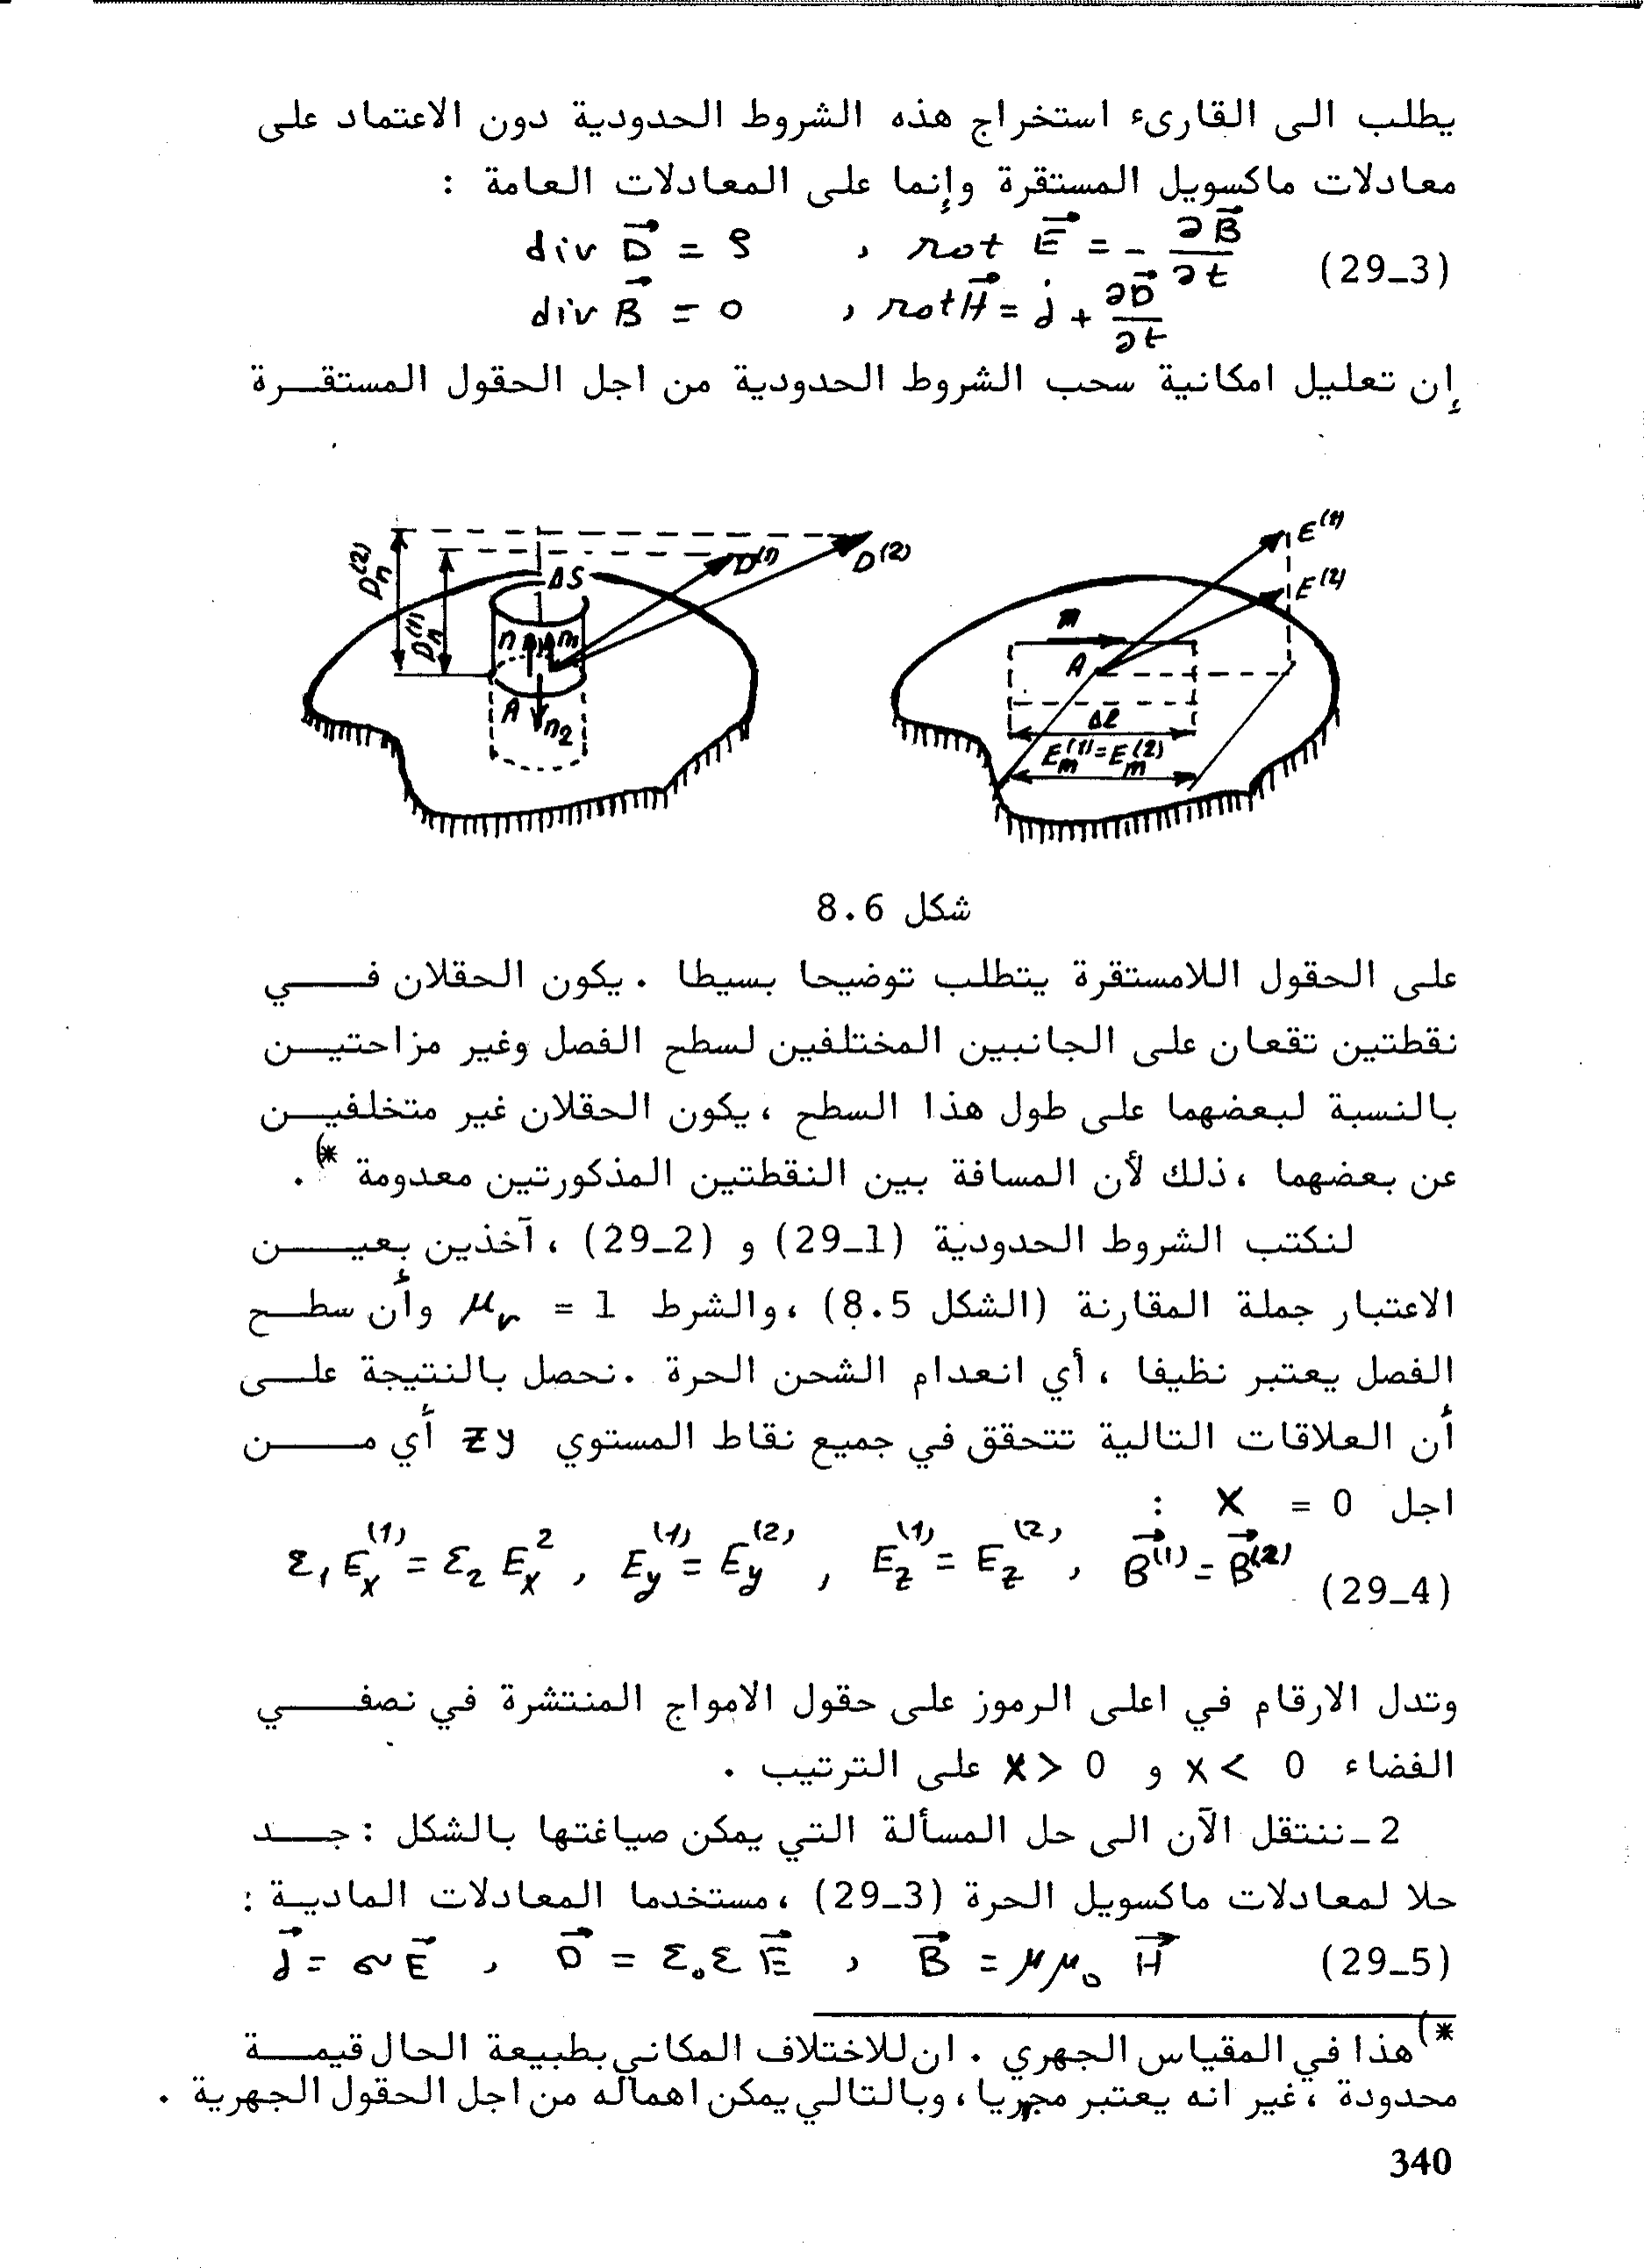 يطلب الى القارىء استخراج هذه الشروط الحدودية دون الاعتماد على
معادلات ماكسويل المستقرة وإنما على المعادلات العامة :
div D⃗ = ρ , rot E⃗ = - ∂B⃗/∂t (29_3)
div B⃗ = 0 , rot H⃗ = j + ∂D⃗/∂t
إن تعليل امكانية سحب الشروط الحدودية من اجل الحقول المستقـرة
Dn(2) Dn(1) ΔS D(1) D(2) n m A n2
E(1) E(2) m A Δl Em(1)=Em(2)
شكل 8.6
على الحقول اللامستقرة يتطلب توضيحا بسيطا . يكون الحقلان فـي
نقطتين تقعان على الجانبين المختلفين لسطح الفصل وغير مزاحتيـن
بالنسبة لبعضهما على طول هذا السطح ، يكون الحقلان غير متخلفيـن
عن بعضهما ، ذلك لأن المسافة بين النقطتين المذكورتين معدومة *) .
لنكتب الشروط الحدودية (29_1) و (29_2) ، آخذين بعيـن
الاعتبار جملة المقارنة (الشكل 8.5) ، والشرط μr = 1 وأن سطـح
الفصل يعتبر نظيفا ، أي انعدام الشحن الحرة . نحصل بالنتيجة علـى
أن العلاقات التالية تتحقق في جميع نقاط المستوي zy أي مـن
اجل x = 0 :
ε1 Ex(1) = ε2 Ex2 , Ey(1) = Ey(2) , Ez(1) = Ez(2) , B⃗(1) = B⃗(2) (29_4)
وتدل الارقام في اعلى الرموز على حقول الامواج المنتشرة في نصفـي
الفضاء x < 0 و x > 0 على الترتيب .
2 _ ننتقل الآن الى حل المسألة التي يمكن صياغتها بالشكل : جـد
حلا لمعادلات ماكسويل الحرة (29_3) ، مستخدما المعادلات الماديـة :
j⃗ = σE⃗ , D⃗ = ε0ε E⃗ , B⃗ = μμ0 H⃗ (29_5)
*) هذا في المقياس الجهري . ان للاختلاف المكاني بطبيعة الحال قيمـة
محدودة ، غير انه يعتبر مجهريا ، وبالتالي يمكن اهماله من اجل الحقول الجهرية .
340